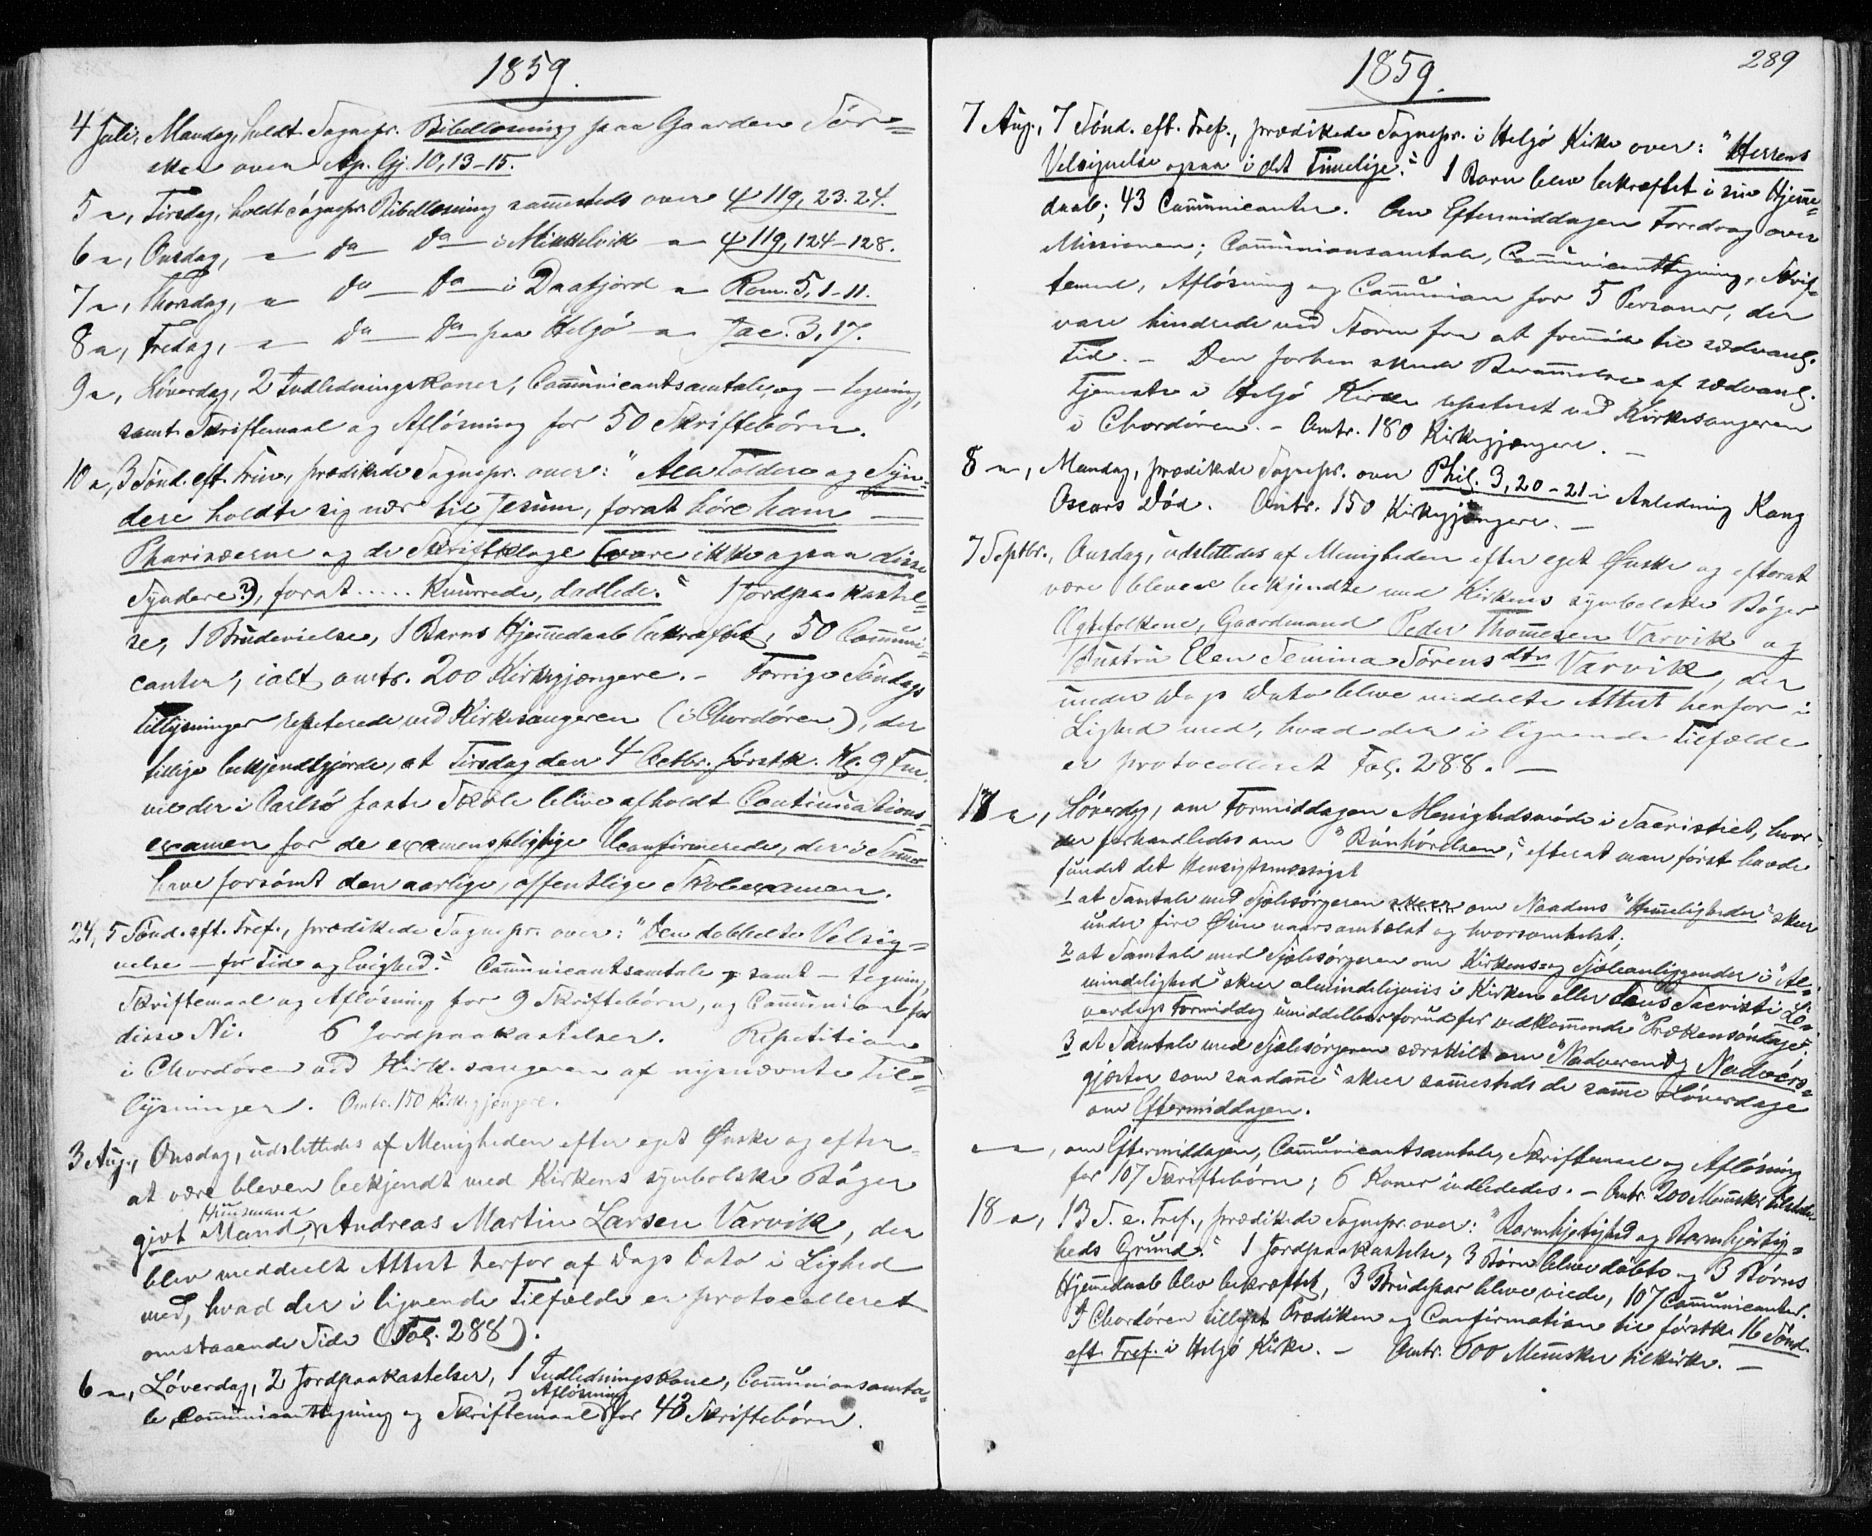 1859.
4 Juli, Mandag, holdt Sognepr. Bibellæsning paa Gaarden Tors-
over Ap. Gj. 10, 13-15.
5 ", Tirsdag, holdt Sognepr. Bibellæsning sammesteds over ψ 119, 23. 24.
6 ", Onsdag, " do do i Mikkelvik " ψ 119, 124-128.
7 ", Thorsdag, " do do i Daafjord " Rom. 5, 1-11.
8 ", Fredag, " do do paa Helgö " Jac. 3, 17.
9 ", Löverdag, 2 Indledningskoner, Com̄unicantsamtale, og - tegning,
samt Skriftemaal og Aflösning for 50 Skriftebörn.
10 ", 3 Sönd. eft. Trin., prædikede Sognepr. over: "Alle Toldere og Syn-
dere holdte sig nær til Jesum, forat höre ham
Pharisæerne og de Skriftkloge (vare ikke ogsaa disse
Syndere?), forat ..... Knurrede, dadlede." 1 Jordpaakastel-
se, 1 Brudevielse, 1 Barns Hjem̄edaab bekræftet, 50 Com̄uni-
canter, ialt omtr. 200 Kirkegjængere. - Forrige Söndags
Tillysninger repeterede ved Kirkesangeren (i Chordören), der
tillige bekjendtgjorde, at Tirsdag den 4 Octbr. förstk. Kl. 9 Fm.
vil der i Carlsö faste Skole blive afholdt Continuations-
examen for de examenspligtige Uconfirmerede, der i Som̄er
have forsömt den aarlige, offentlige Skoleexamen.
24, 5 Sönd. eft. Tref., prædikede Sognepr. over: "Den dobbelte Velsig-
nelse - for Tid og Evighed." Com̄unicantsamtale samt - tegning,
Skriftemaal og Aflösning for 9 Skriftebörn, og Com̄union for
disse Ni. 6 Jordpaakastelser. Repetition
i Chordören ved Kirkesangeren af nysnævnte Til-
lysninger. Omtr. 150 Kirkegjængere.
3 Aug., Onsdag, udslettedes af Menigheden efter eget Ønske og efter
at være bleven bekjendt med Kirkens symbolske Böger
Huusmand
givt Mand, Andreas Martin Larsen Varvik, der
blev meddelt Attest herfor af Dags Dato i Lighed
med, hvad der i lignende Tilfælde er protocolleret
omstaaende Side (Fol. 288).
6 ", Löverdag, 2 Jordpaakastelser, 1 Indledningskone, Com̄unionsamta-
Aflösning
le, Com̄unicanttegning og Skriftemaal for 43 Skriftebörn.
1859.
289
7 Aug., 7 Sönd. eft. Tref., prædikede Sognepr. i Helgö Kirke over: "Herrens
Velsignelse ogsaa i det Timelige." 1 Barn blev bekræftet i sin Hjem̄e-
daab; 43 Com̄unicanter. Om Eftermiddagen Foredrag over
Missionen; Com̄unionsamtale, Com̄unicanttegning, Skrif-
temaal, Aflösning og Com̄union for 5 Personer, der
vare hindrede ved Storm fra at frem̄öde til sædvanl.
Tid. - Den forhen skede Beram̄else af sædvanl.
Tjeneste i Helgö Kirke repeteret ved Kirkesangeren
i Chordören. - Omtr. 180 Kirkegjængere.
8 ", Mandag, prædikede Sognepr. over Phil. 3, 20-21 i Anledning Kong
Oscars Död. Omtr. 150 Kirkegjængere.
7 Septbr., Onsdag, udslettedes af Menigheden efter eget Ønske og efterat
være blevne bekjendte med Kirkens symbolske Böger
Ægtefolkene, Gaardmand Peder Thom̄esen Varvik og
Hustru Elen Semina Sörensdtr Varvik, der
under Dags Dato bleve meddelte Attest herfor i
Lighed med, hvad der i lignende Tilfælde
er protocolleret Fol. 288.
17 ", Löverdag, om Formiddagen Menighedsmöde i Sacristiet, hvor
der forhandledes om "Bönhörelsen", efterat man först havde
fundet det Hensigtsmæssigst
1 at Samtale med Sjælesörgeren om Naadens "Hem̄eligheder" skeer
under fire Øine naarsomhelst og hvorsomhelst;
2 at Samtale med Sjælesörgeren om Kirkens og Sjæleanliggender i "Al-
mindelighed" skeer almindeligviis i Kirken eller dens Sacristi Lö-
verdags Formiddag umiddelbar forud for vedkom̄ende "Prækensöndage";
3 at Samtale med Sjælesörgeren særskilt om "Nadveren og Nadvers-
gjæster som saadanne" skeer sam̄esteds de sam̄e Löverdage
om Eftermiddagen.
" ", om Eftermiddagen, Com̄unicantsamtale, Skriftemaal og Aflösning
for 107 Skriftebörn; 6 Koner indlededes. - Omtr. 200 Men̄esker tilstede.
18 ", 13 S. e. Tref., prædikede Sognepr. over: "Barmhjertighed og Barmhjertig-
heds Grund." 1 Jordpaakastelse, 3 Börn bleve döbte og 3 Börns
Hjem̄edaab blev bekræftet, 3 Brudepar bleve viede, 107 Com̄unicanter.
I Chordören tillyst Prædiken og Confirmation til förstk. 16 Sönd.
eft. Tref. i Helgö Kirke. - Omtr. 600 Men̄esker tilkirke.